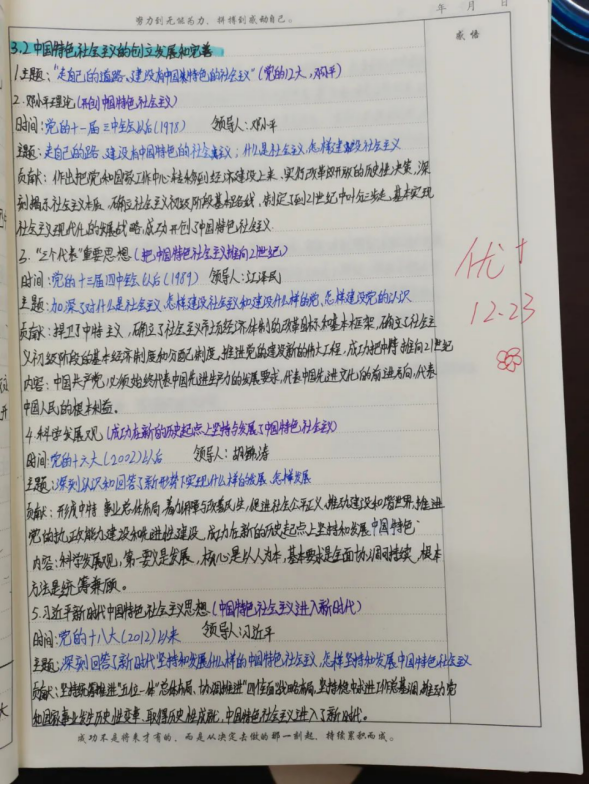 努力到无能为力，拼搏到感动自己。
年 月 日
感悟
3.2 中国特色社会主义的创立发展和完善
1.主题："走自己的道路、建设有中国特色的社会主义"（党的12大，邓小平）
2.邓小平理论（开创中国特色社会主义）
时间：党的十一届三中全会以后（1978） 领导人：邓小平
主题：走自己的路、建设有中国特色的社会主义；什么是社会主义、怎样建设社会主义
贡献：作出把党和国家工作中心转移到经济建设上来、实行改革开放的历史性决策，深
刻揭示社会主义本质、确立社会主义初级阶段基本路线，制定了到21世纪中叶分三步走、基本实现
社会主义现代化的发展战略，成功开创了中国特色社会主义
3."三个代表"重要思想（把中国特色社会主义推向21世纪）
时间：党的十三届四中全会以后（1989） 领导人：江泽民
主题：加深了对什么是社会主义、怎样建设社会主义和建设什么样的党、怎样建设党的认识
贡献：捍卫了中特主义，确立了社会主义市场经济体制的改革目标和基本框架，确立了社会主
义初级阶段的基本经济制度和分配制度，推进党的建设新的伟大工程，成功把中特推向21世纪
内容：中国共产党必须始终代表中国先进生产力的发展要求，代表中国先进文化的前进方向，代表
中国人民的根本利益。
4.科学发展观（成功在新的历史起点上坚持与发展了中国特色社会主义）
时间：党的十六大（2002）以后 领导人：胡锦涛
主题：深刻认识和回答了新形势下实现什么样的发展、怎样发展
贡献：形成中特事业总体布局，着力保障与改善民生，促进社会公平正义，推动建设和谐世界，推进
党的执政能力建设和先进性建设，成功在新的历史起点上坚持和发展中国特色
内容：科学发展观，第一要义是发展，核心是以人为本，基本要求是全面协调可持续，根本
方法是统筹兼顾。
5.习近平新时代中国特色社会主义思想（中国特色社会主义进入新时代）
时间：党的十八大（2012）以来 领导人：习近平
主题：深刻回答了新时代坚持和发展什么样的中国特色社会主义，怎样坚持和发展中国特色社会主义
贡献：坚持统筹推进"五位一体"总体布局、协调推进"四个全面"战略布局，坚持稳中求进工作总基调，推动党
和国家事业发生历史性变革、取得历史性成就，中国特色社会主义进入了新时代。
优+
12.23
成功不是将来才有的，而是从决定去做的那一刻起，持续累积而成。